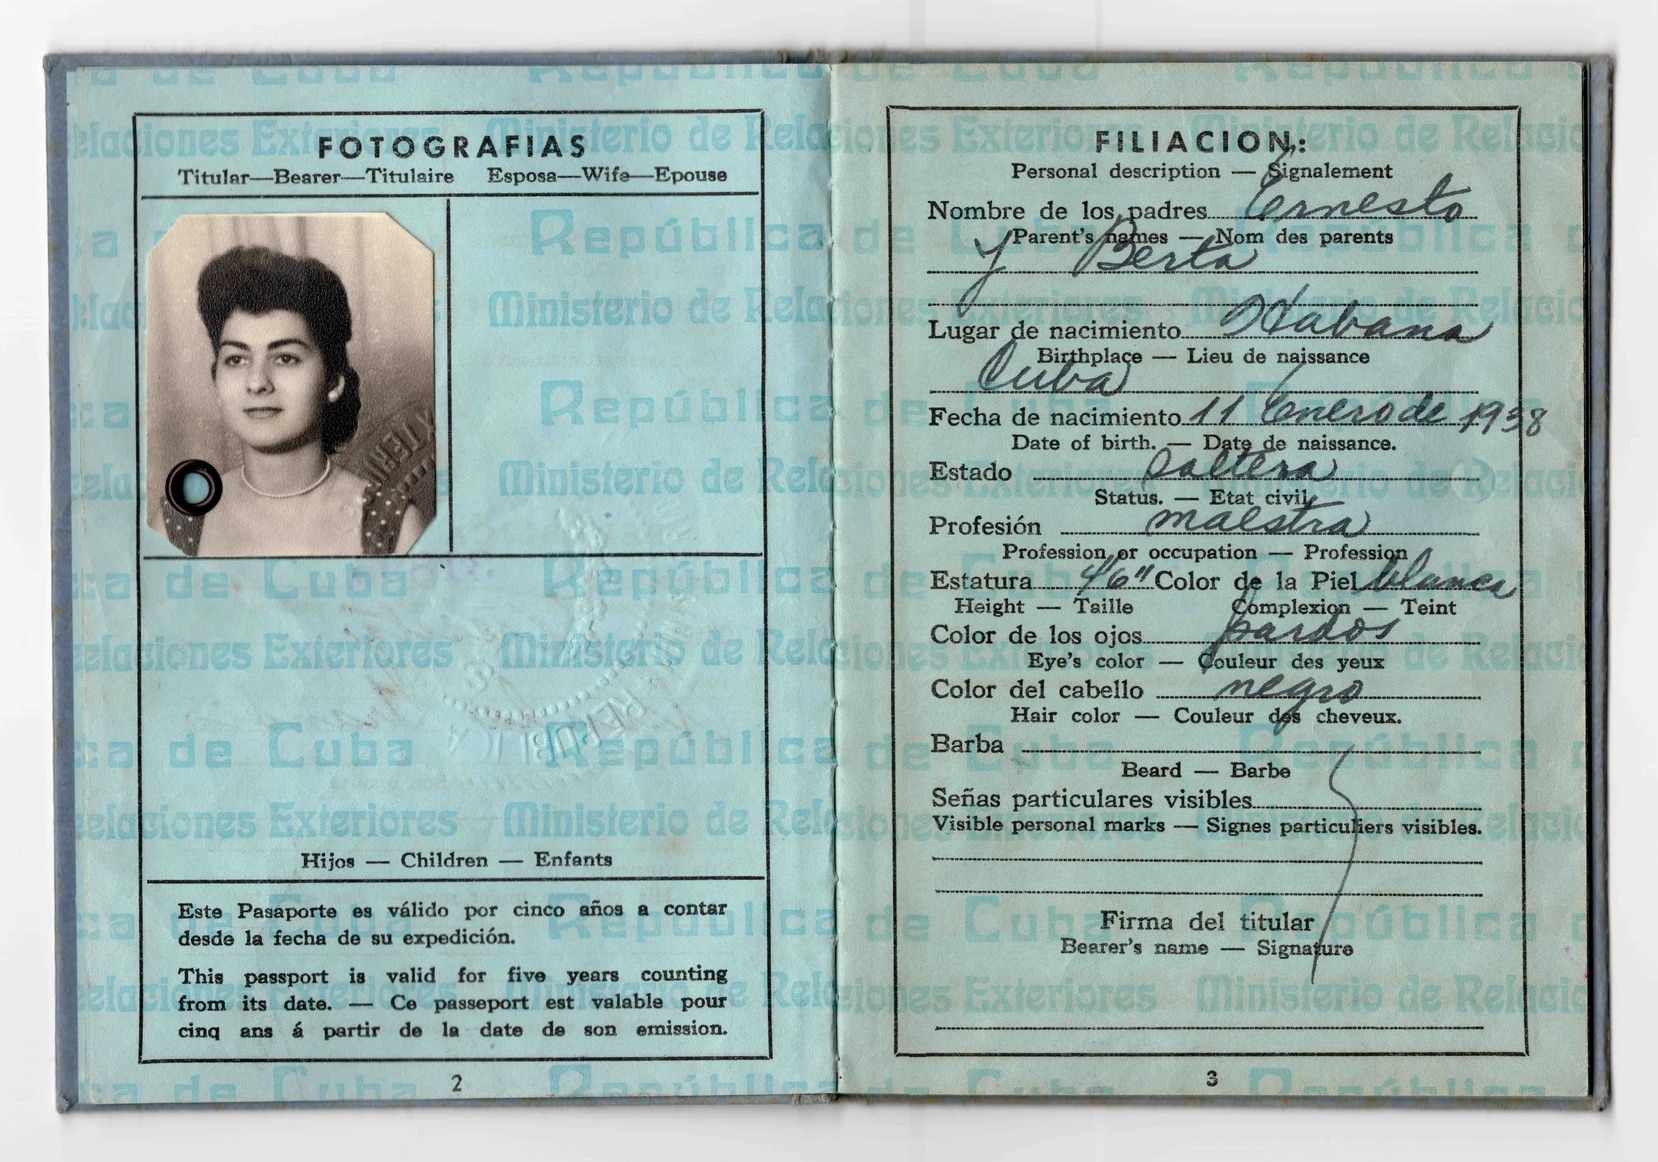 FOTOGRAFIAS
Titular—Bearer—Titulaire Esposa—Wife—Epouse
Hijos — Children — Enfants
Este Pasaporte es válido por cinco años a contar
desde la fecha de su expedición.
This passport is valid for five years counting
from its date. — Ce passeport est valable pour
cinq ans á partir de la date de son emission.
2
FILIACION:
Personal description — Signalement
Nombre de los padres Ernesto
Parent's names — Nom des parents
y Berta
Lugar de nacimiento Habana
Birthplace — Lieu de naissance
Cuba
Fecha de nacimiento 11 Enero de 1938
Date of birth. — Date de naissance.
Estado soltera
Status. — Etat civil
Profesión maestra
Profession or occupation — Profession
Estatura 4'6" Color de la Piel blanca
Height — Taille Complexion — Teint
Color de los ojos pardos
Eye's color — Couleur des yeux
Color del cabello negro
Hair color — Couleur des cheveux.
Barba
Beard — Barbe
Señas particulares visibles
Visible personal marks — Signes particuliers visibles.
Firma del titular
Bearer's name — Signature
3
República de Cuba
Ministerio de Relaciones Exteriores